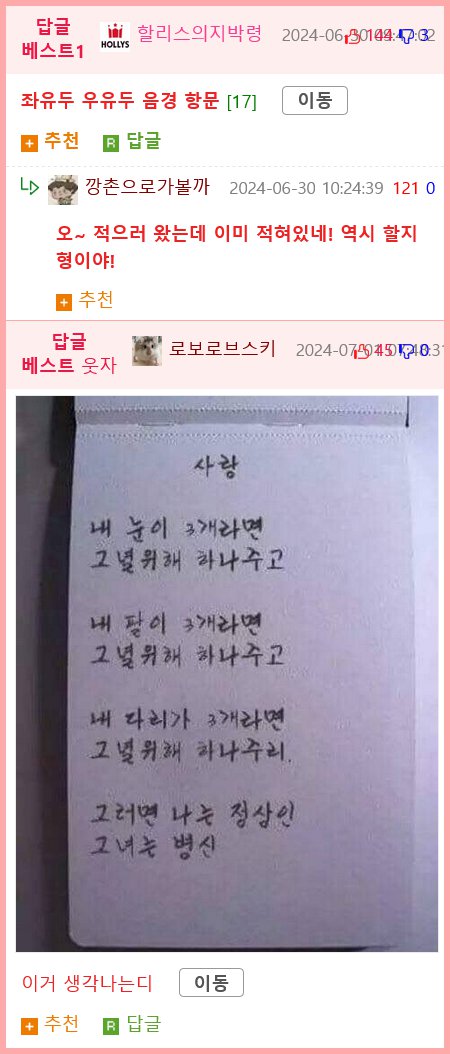 답글
베스트1
HOLLYS
할리스의지박령
3
좌유두 우유두 음경 항문 [17] 이동
추천 R 답글
깡촌으로가볼까 2024-06-30 10:24:39 121 0
오~ 적으러 왔는데 이미 적혀있네! 역시 할지
형이야!
추천
답글
베스트 웃자
로보로브스키
45 0
사랑
내 눈이 3개라면
그녈위해 하나주고
내 팔이 3개라면
그녈위해 하나주고
내 다리가 3개라면
그녈위해 하나주리.
그러면 나는 정상인
그녀는 병신
이거 생각나는디 이동
추천 R 답글